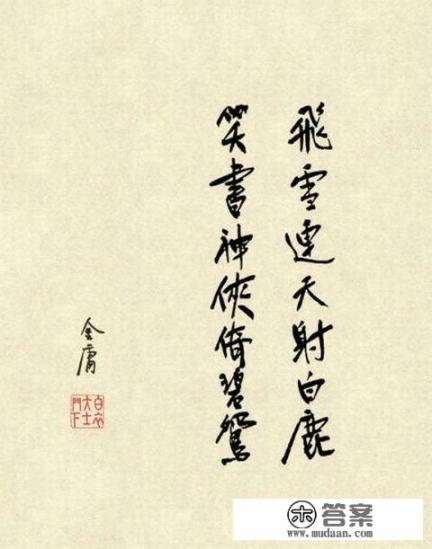 飛雪連天射白鹿
笑書神俠倚碧鴛
金庸
白衣
大士
門下
答案
www.mudaan.com